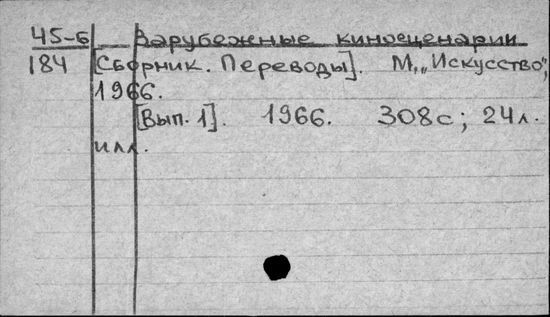 45-6 Зарубежные киносценарии
184 [Сборник. Переводы]. М., „Искусство",
1966.
[Вып. 1]. 1966. 308с; 24л.
илл.